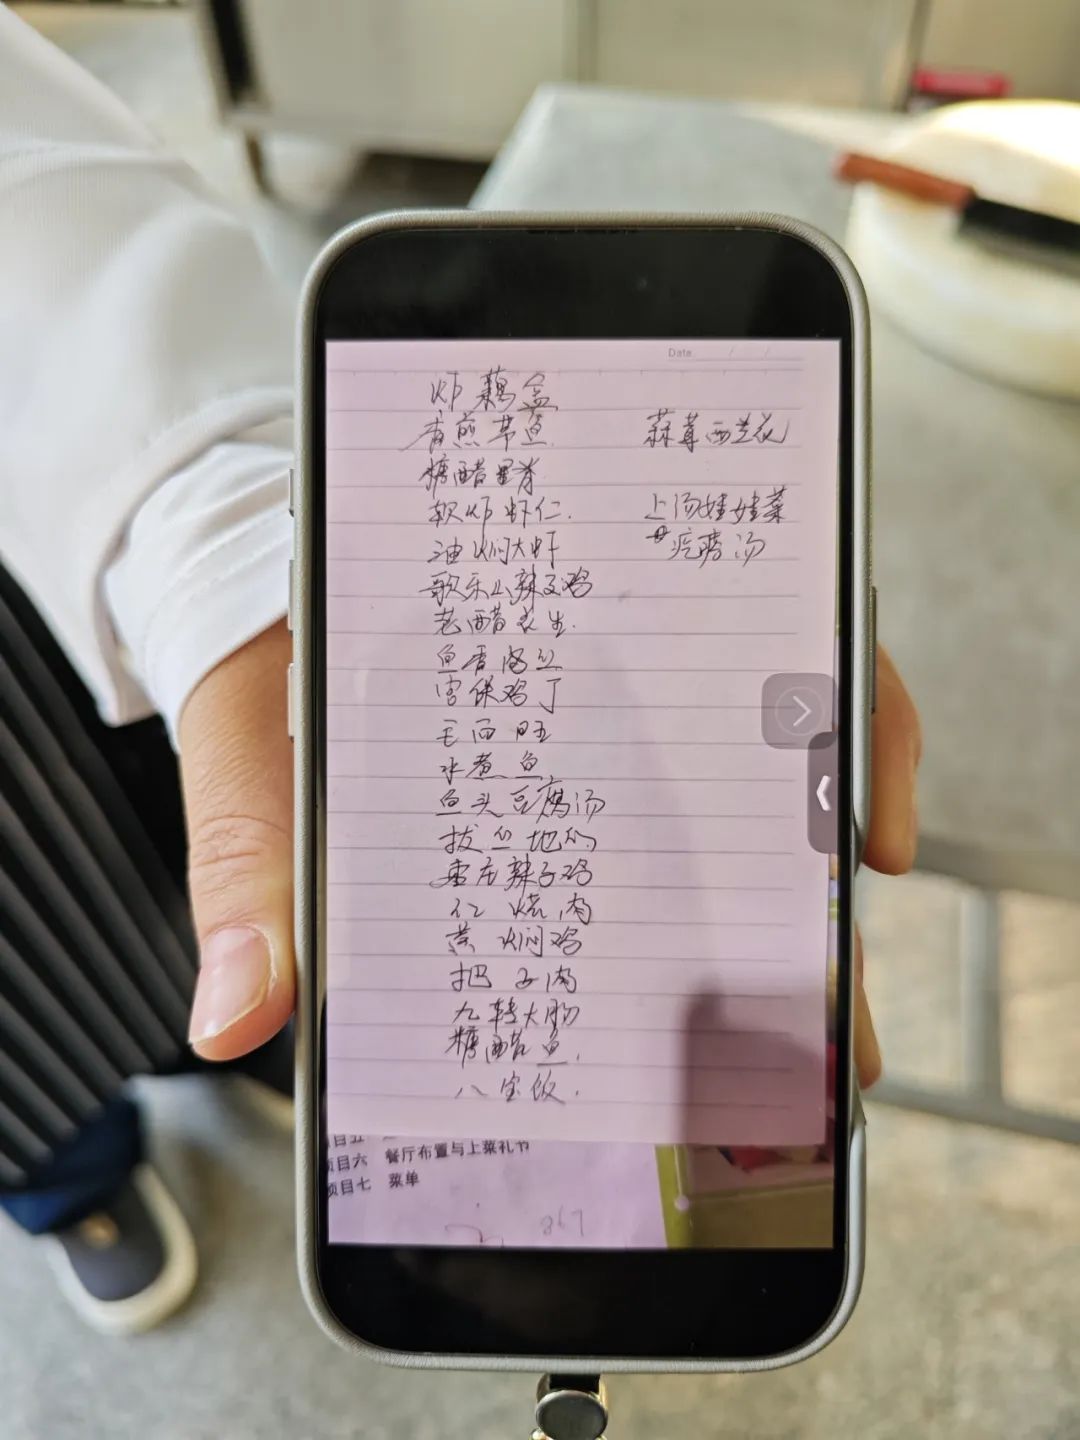 Date / /
炸藕盒
香煎带鱼
糖醋里脊
软炸虾仁.
油焖大虾
歌乐山辣子鸡
老醋花生.
鱼香肉丝
宫保鸡丁
毛血旺
水煮鱼
鱼头豆腐汤
拔丝地瓜
枣庄辣子鸡
红烧肉
黄焖鸡
把子肉
九转大肠
糖醋鱼.
八宝饭.
蒜茸西兰花
上汤娃娃菜
疙瘩汤
项目五
项目六 餐厅布置与上菜礼节
项目七 菜单
867